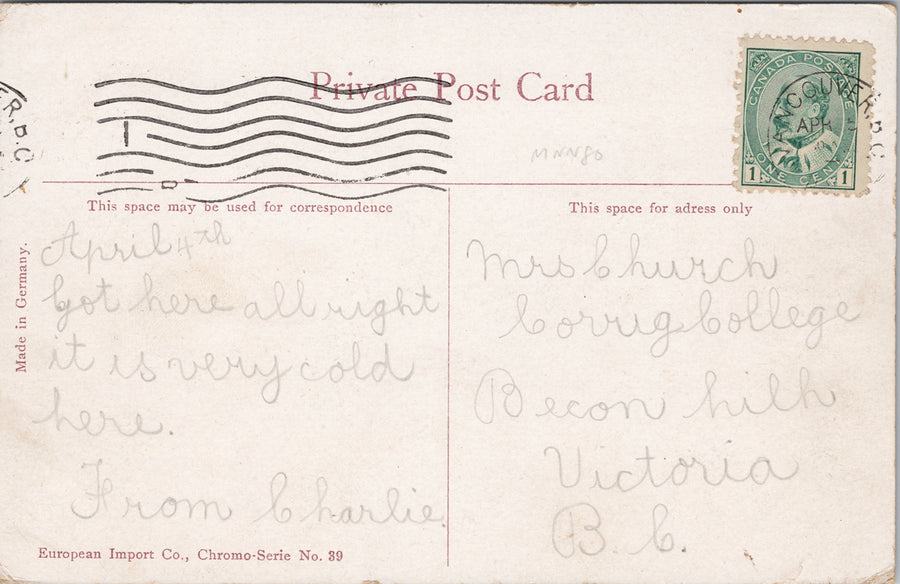 Private Post Card
CANADA POSTAGE
VANCOUVER. B.C.
APR
1 ONE CENT 1
MNN80
This space may be used for correspondence
This space for adress only
Made in Germany.
April 4th
Got here all right
it is very cold
here.
From Charlie.
Mrs Church
Corrig College
Becon hilh
Victoria
B. C.
European Import Co., Chromo-Serie No. 39